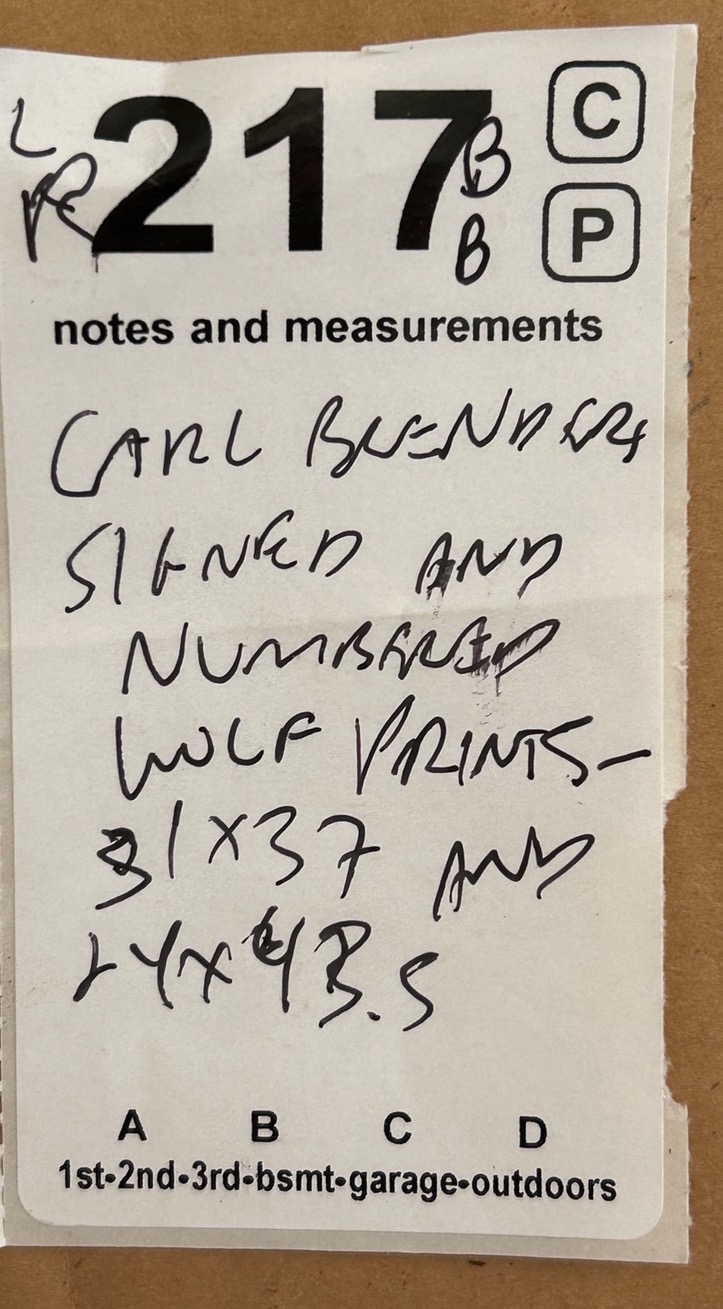 L 217 B C
R B P
notes and measurements
CARL BRENDERS
SIGNED AND
NUMBERED
WOLF PRINTS-
31X37 AND
24X43.5
A B C D
1st•2nd•3rd•bsmt•garage•outdoors